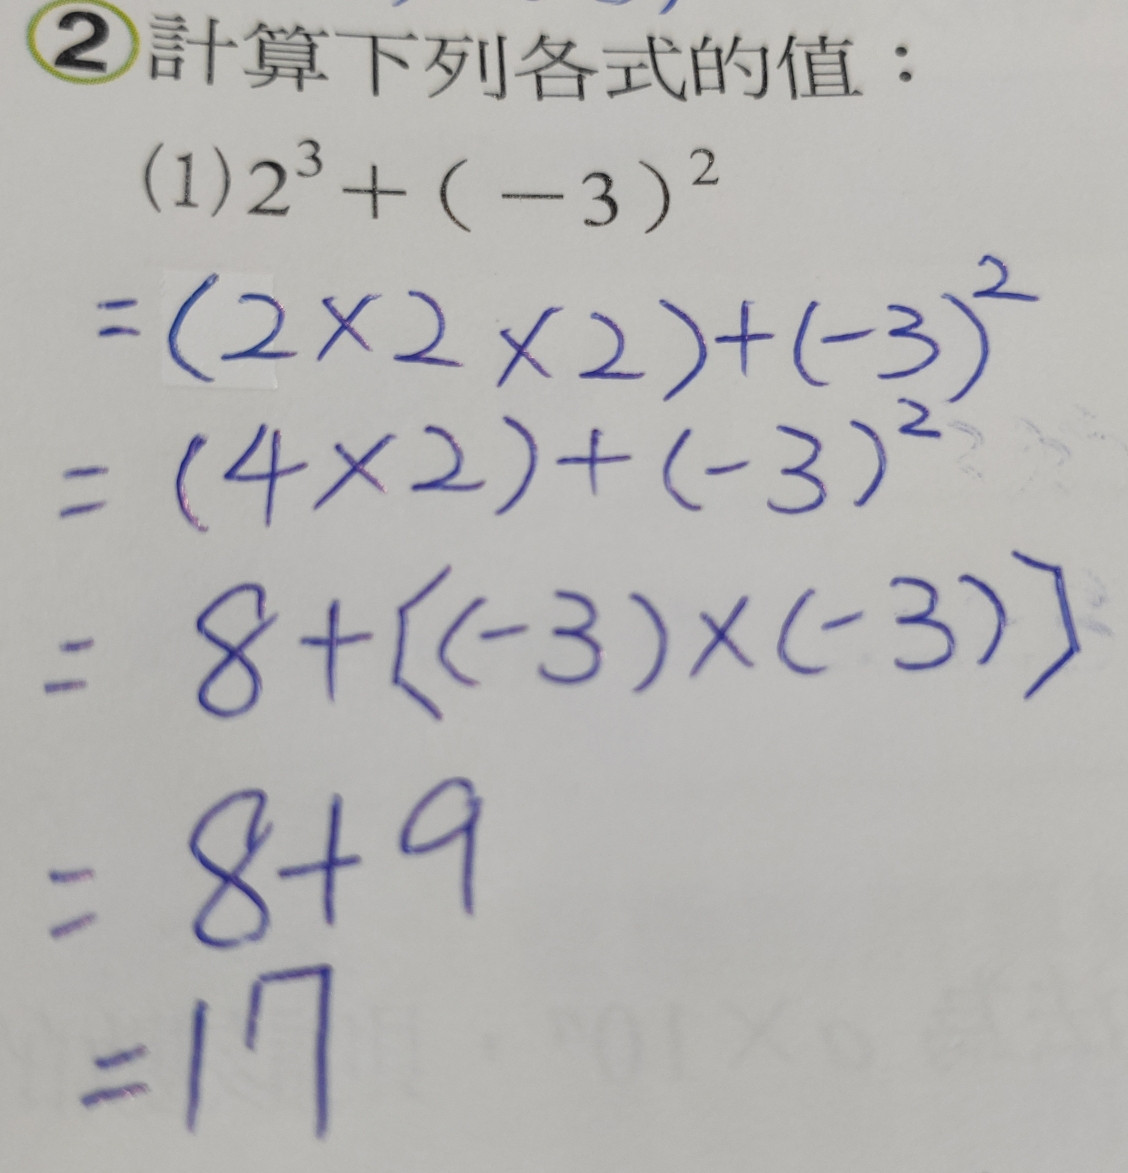 ②計算下列各式的值：
(1)2³＋(－3)²
=(2×2×2)+(-3)²
=(4×2)+(-3)²
=8+[(-3)×(-3)]
=8+9
=17